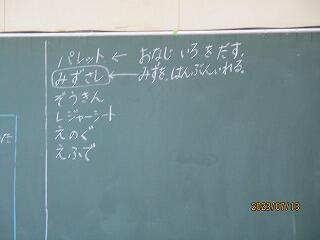 パレット ← おなじ いろ をだす。
みずさし ← みずを、はんぶんいれる。
ぞうきん
レジャーシート
えのぐ
えふで
2023/07/13